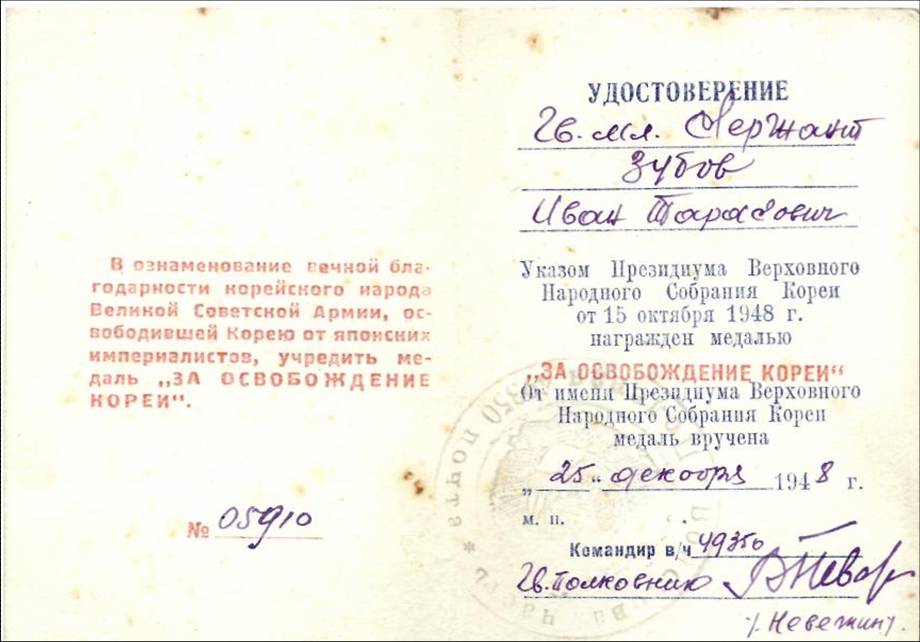 В ознаменование вечной бла-
годарности корейского народа
Великой Советской Армии, ос-
вободившей Корею от японских
империалистов, учредить ме-
даль „ЗА ОСВОБОЖДЕНИЕ
КОРЕИ".
№ 05910
УДОСТОВЕРЕНИЕ
Гв. мл. Сержант
Зубов
Иван Тарасович
Указом Президиума Верховного
Народного Собрания Кореи
от 15 октября 1948 г.
награжден медалью
„ЗА ОСВОБОЖДЕНИЕ КОРЕИ"
От имени Президиума Верховного
Народного Собрания Кореи
медаль вручена
„25" декабря 1948 г.
м. п.
Командир в/ч 49350
Гв. Полковник
/. Невежин/.